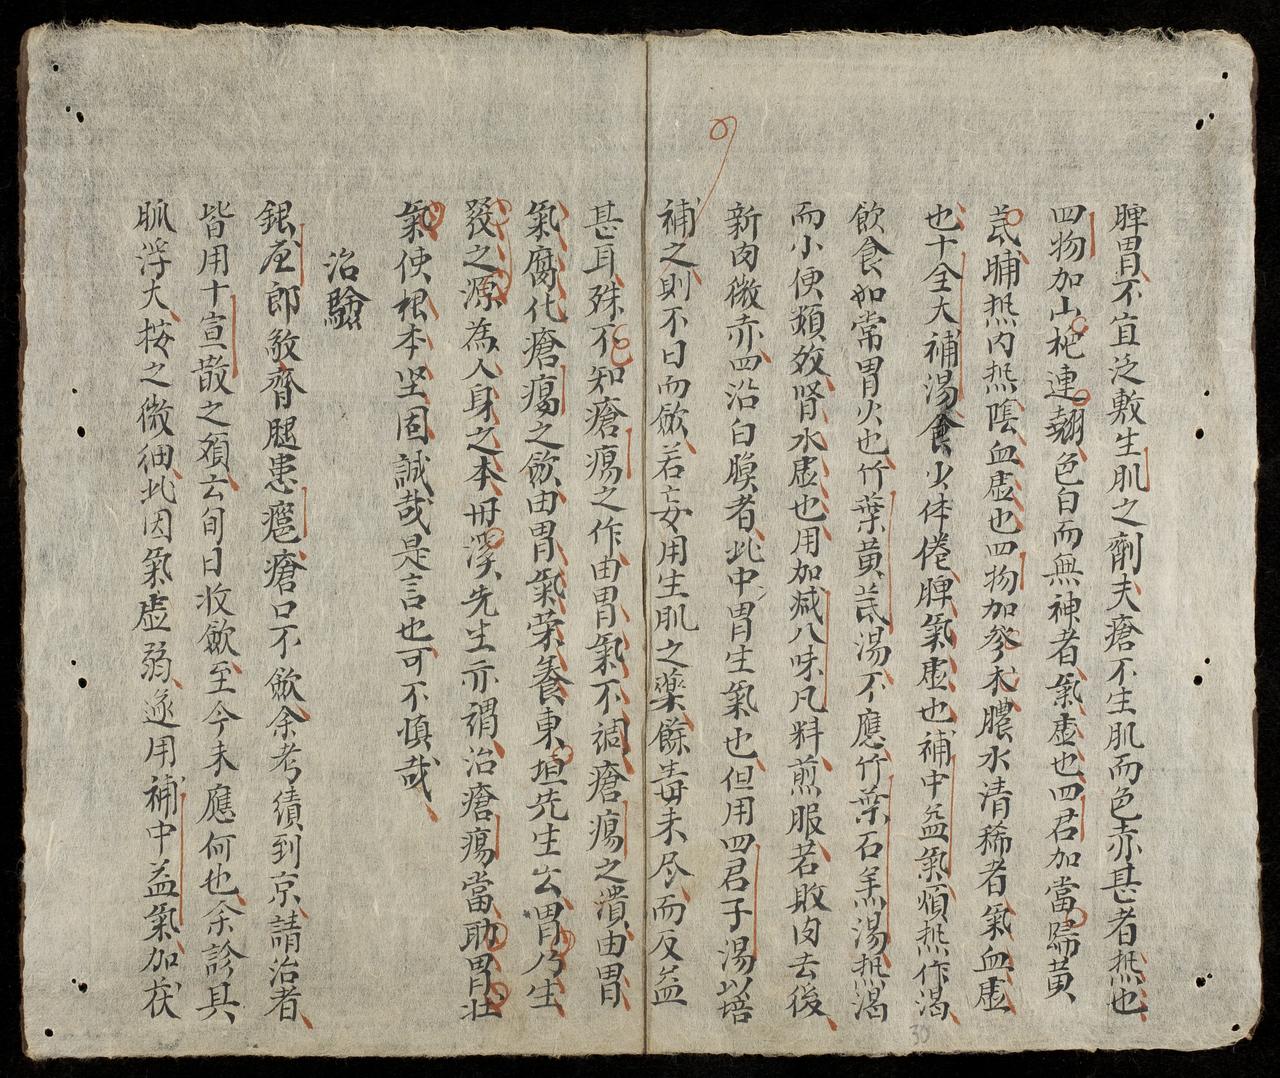 脾胃不宜泛敷生肌之劑夫瘡不生肌而色赤甚者热也
四物加山栀連翹色白而無神者氣虚也四君加當歸黄
芪晡热内热陰血虚也四物加參朮膿水清稀者氣血虚
也十全大補湯食少体倦脾氣虚也補中益氣煩热作渴
飲食如常胃火也竹葉黄芪湯不應竹葉石羔湯热渴
而小便頻数肾水虚也用加減八味凡料煎服若敗肉去後
新肉微赤四沿白膜者此中胃生氣也但用四君子湯以培
補之則不日而歛若妄用生肌之藥餘毒未尽而反益
甚耳殊不知瘡瘍之作由胃氣不調瘡瘍之潰由胃
氣腐化瘡瘍之歛由胃氣荣養東垣先生云胃乃生
發之源為人身之本丹溪先生亦謂治瘡瘍當助胃壯
氣使根本坚固誠哉是言也可不慎哉
治驗
銀臺郎敏齊腿患癰瘡口不歛余考績到京請治者
皆用十宣散之類云旬日收歛至今未應何也余診其
脈浮大按之微細此因氣虚弱遂用補中益氣加茯